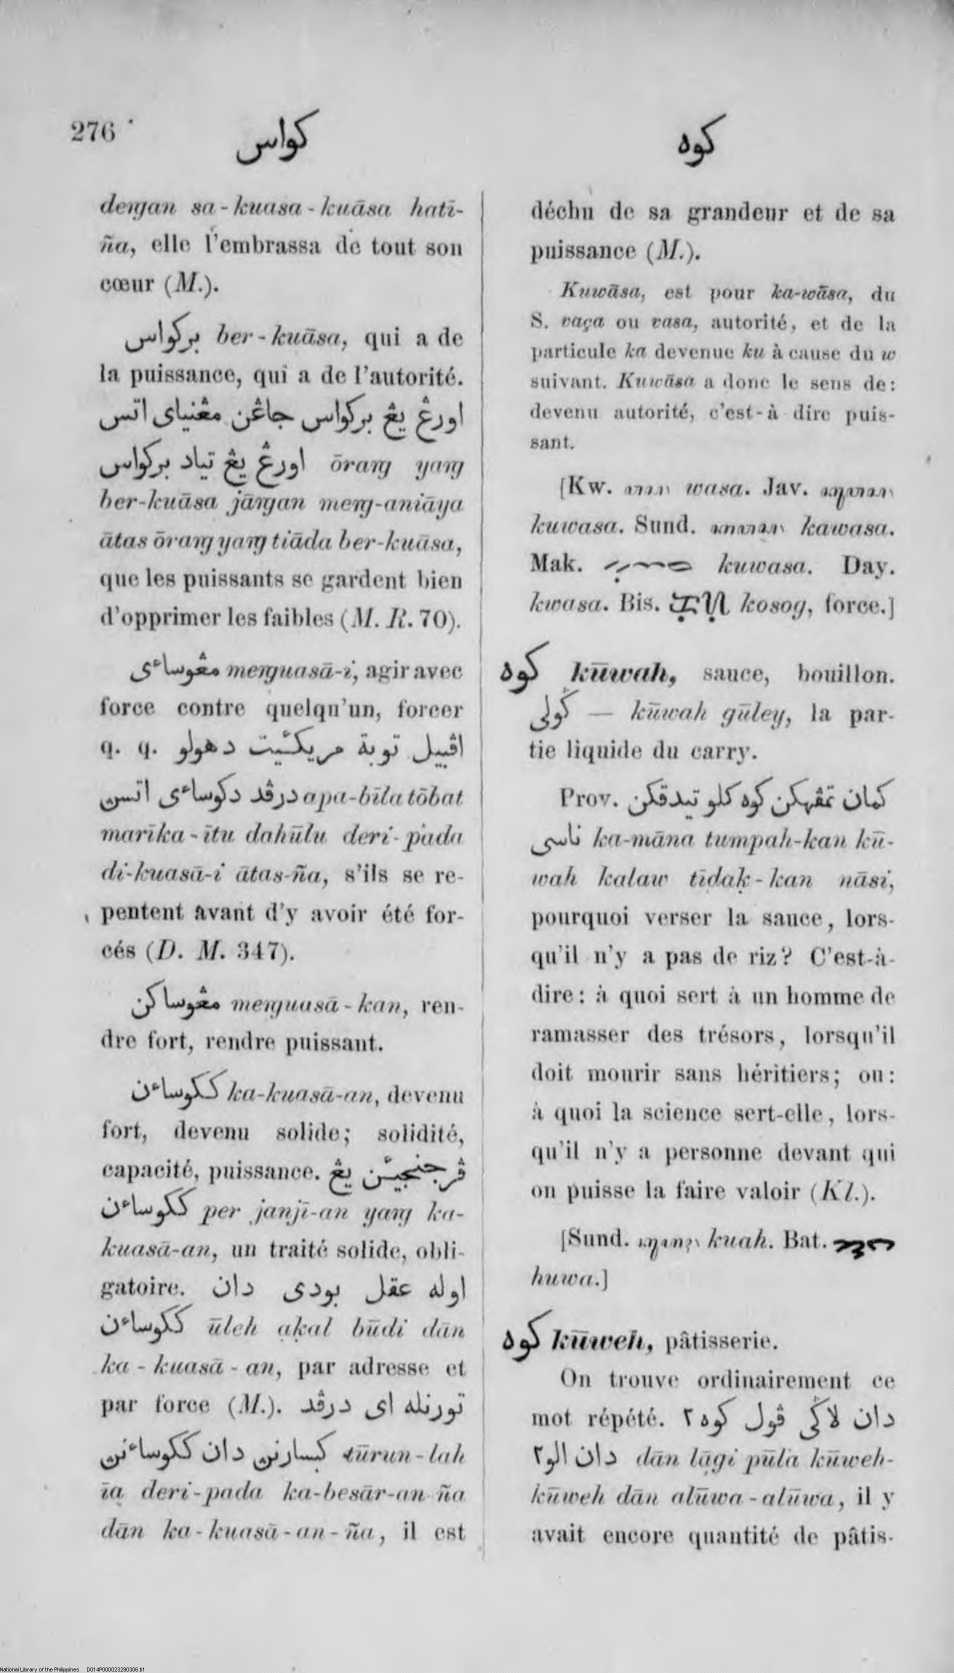 276
كواس
كوه
deṅgan sa-kuasa-kuāsa hatī-
ña, elle l'embrassa de tout son
cœur (M.).
بركواس ber-kuāsa, qui a de
la puissance, qui a de l'autorité.
اورڠ يڠ بركواس جاڠن مڠنياي اتس
اورڠ يڠ تياد بركواس ōraṅg yaṅg
ber-kuāsa jāṅgan meṅg-aniāya
ātas ōraṅg yaṅg tiāda ber-kuāsa,
que les puissants se gardent bien
d'opprimer les faibles (M. R. 70).
مڠوساءي meṅguasā-i, agir avec
force contre quelqu'un, forcer
q. q. اڤبيل توبة مريكئيت دهولو
درڤد دكوساءي اتسن apa-bīla tōbat
marīka-ītu dahūlu deri-pada
di-kuasā-i ātas-ña, s'ils se re-
pentent avant d'y avoir été for-
cés (D. M. 347).
مڠوساكن meṅguasā-kan, ren-
dre fort, rendre puissant.
ككوساءن ka-kuasā-an, devenu
fort, devenu solide; solidité,
capacité, puissance. ڤرجنجيئن يڠ
ككوساءن per janjī-an yaṅg ka-
kuasā-an, un traité solide, obli-
gatoire. اوله عقل بودي دان
ككوساءن ūleh aḳal būdi dān
ka-kuasā-an, par adresse et
par force (M.). تورنله اي درڤد
كبسارنن دان ككوساءنن tūrun-lah
īa deri-pada ka-besār-an-ña
dān ka-kuasā-an-ña, il est
déchu de sa grandeur et de sa
puissance (M.).
Kuwāsa, est pour ka-wāsa, du
S. vaça ou vasa, autorité, et de la
particule ka devenue ku à cause du w
suivant. Kuwāsa a donc le sens de:
devenu autorité, c'est-à dire puis-
sant.
[Kw. wasa. Jav.
kuwasa. Sund. kawasa.
Mak. kuwasa. Day.
kwasa. Bis. kosog, force.]
كوه kūwah, sauce, bouillon.
ڬولي — kūwah gūley, la par-
tie liquide du carry.
Prov. كمان تمڤهكن كوه كلو تيدقكن
ناسي ka-māna tumpah-kan kū-
wah kalaw tīdaḳ-kan nāsi,
pourquoi verser la sauce, lors-
qu'il n'y a pas de riz? C'est-à-
dire: à quoi sert à un homme de
ramasser des trésors, lorsqu'il
doit mourir sans héritiers; ou:
à quoi la science sert-elle, lors-
qu'il n'y a personne devant qui
on puisse la faire valoir (Kl.).
[Sund. kuah. Bat.
huwa.]
كوه kūweh, pâtisserie.
On trouve ordinairement ce
mot répété. دان لاڬي ڤول كوه٢
دان الو٢ dān lāgi pūla kūweh-
kūweh dān alūwa-alūwa, il y
avait encore quantité de pâtis-
National Library of the Philippines D014P000023280306.tif